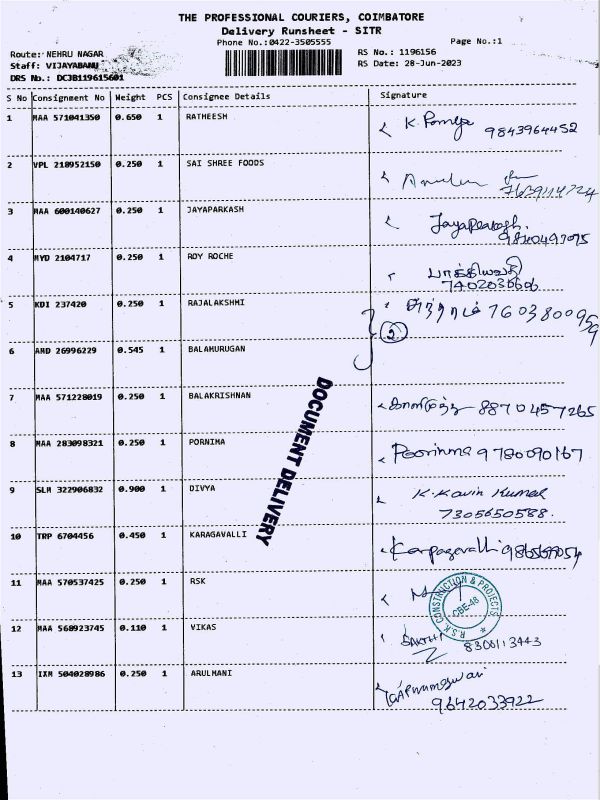 THE PROFESSIONAL COURIERS, COIMBATORE
Delivery Runsheet - SITR
Phone No.:0422-3505555
Page No.:1
Route: NEHRU NAGAR
RS No.: 1196156
Staff: VIJAYABANU
RS Date: 28-Jun-2023
DRS No.: DCJB119615601
S No Consignment No Weight PCS Consignee Details Signature
1 MAA 571041350 0.650 1 RATHEESH
9843964452
2 VPL 218952150 0.250 1 SAI SHREE FOODS
3 MAA 600140627 0.250 1 JAYAPARKASH
Jayaprakash.
4 MYD 2104717 0.250 1 ROY ROCHE
7402036606
5 KDI 237420 0.250 1 RAJALAKSHMI
2
6 AMD 26996229 0.545 1 BALAMURUGAN
7 MAA 571228019 0.250 1 BALAKRISHNAN
8870457265
8 MAA 283098321 0.250 1 PORNIMA
Poorinma 9780090167
9 SLM 322906832 0.900 1 DIVYA
K. Kavin Kumar
7305650588.
10 TRP 6704456 0.450 1 KARAGAVALLI
Karpagavalli
11 MAA 570537425 0.250 1 RSK
R.S.K. CONSTRUCTION & PROJECTS
CBE-48
12 MAA 568923745 0.110 1 VIKAS
SAKTHI
8306113443
13 IXM 504028986 0.250 1 ARULMANI
9642033922
DOCUMENT DELIVERY